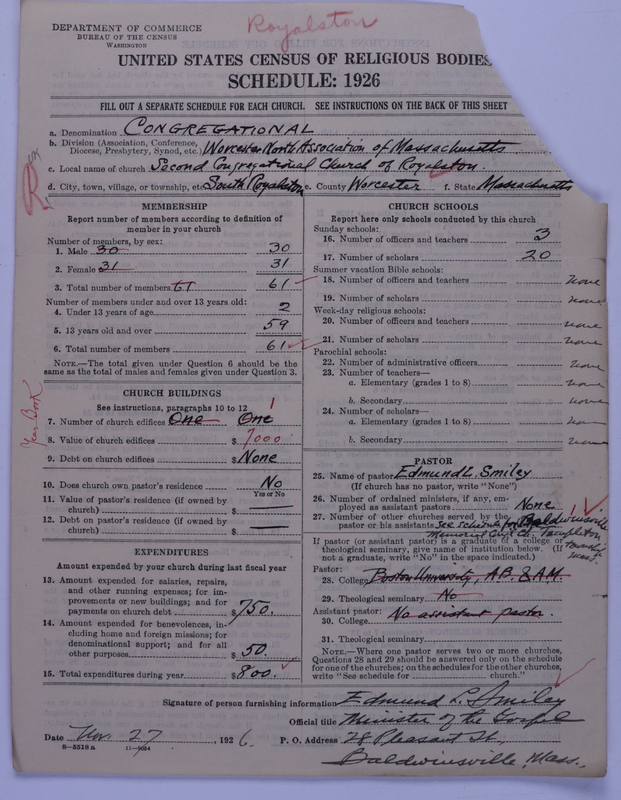 Royalston
DEPARTMENT OF COMMERCE
BUREAU OF THE CENSUS
WASHINGTON
UNITED STATES CENSUS OF RELIGIOUS BODIES
SCHEDULE: 1926
FILL OUT A SEPARATE SCHEDULE FOR EACH CHURCH. SEE INSTRUCTIONS ON THE BACK OF THIS SHEET
a. Denomination CONGREGATIONAL
b. Division (Association, Conference, Diocese, Presbytery, Synod, etc.) Worcester North Association of Massachusetts
c. Local name of church Second Congregational Church of Royalston.
d. City, town, village, or township, etc. South Royalston e. County Worcester f. State Massachusetts
MEMBERSHIP
Report number of members according to definition of member in your church
Number of members, by sex:
1. Male 30 30
2. Female 31 31
3. Total number of members 61 61
Number of members under and over 13 years old:
4. Under 13 years of age 2
5. 13 years old and over 59
6. Total number of members 61
NOTE.—The total given under Question 6 should be the same as the total of males and females given under Question 3.
Year Book
CHURCH BUILDINGS
See instructions, paragraphs 10 to 12 1
7. Number of church edifices One One
8. Value of church edifices $ 7000
9. Debt on church edifices $ None
10. Does church own pastor's residence No
Yes or No
11. Value of pastor's residence (if owned by church) $ —
12. Debt on pastor's residence (if owned by church) $ —
EXPENDITURES
Amount expended by your church during last fiscal year
13. Amount expended for salaries, repairs, and other running expenses; for improvements or new buildings; and for payments on church debt $ 750.
14. Amount expended for benevolences, including home and foreign missions; for denominational support; and for all other purposes $ 50.
15. Total expenditures during year $ 800.
CHURCH SCHOOLS
Report here only schools conducted by this church
Sunday schools:
16. Number of officers and teachers 3
17. Number of scholars 20
Summer vacation Bible schools:
18. Number of officers and teachers none
19. Number of scholars none
Week-day religious schools:
20. Number of officers and teachers none
21. Number of scholars none
Parochial schools:
22. Number of administrative officers none
23. Number of teachers—
a. Elementary (grades 1 to 8) none
b. Secondary none
24. Number of scholars—
a. Elementary (grades 1 to 8) none
b. Secondary none
PASTOR
25. Name of pastor Edmund L. Smiley
(If church has no pastor, write "None")
26. Number of ordained ministers, if any, employed as assistant pastors None
27. Number of other churches served by the pastor or his assistants see schedule for Baldwinsville
Memorial Templeton
If pastor (or assistant pastor) is a graduate of a college or theological seminary, give name of institution below. (If not a graduate, write "No" in the space indicated.)
Pastor:
28. College Boston University, A.B. & A.M.
29. Theological seminary No
Assistant pastor: No assistant pastor.
30. College
31. Theological seminary
NOTE.—Where one pastor serves two or more churches, Questions 28 and 29 should be answered only on the schedule for one of the churches; on the schedules for the other churches, write "See schedule for church."
Signature of person furnishing information Edmund L. Smiley
Official title Minister of the Gospel
Date Nov. 27, 1926. P. O. Address 28 Pleasant St.,
8—5519 a
Baldwinsville, Mass.